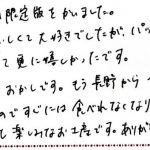 限定版をかいました。
しくて大好きでしたが、パッ
て更に嬉しかったです。
おかしです。もう長野から
のですぐには食べれなくなり
て楽しみなお土産です。ありが